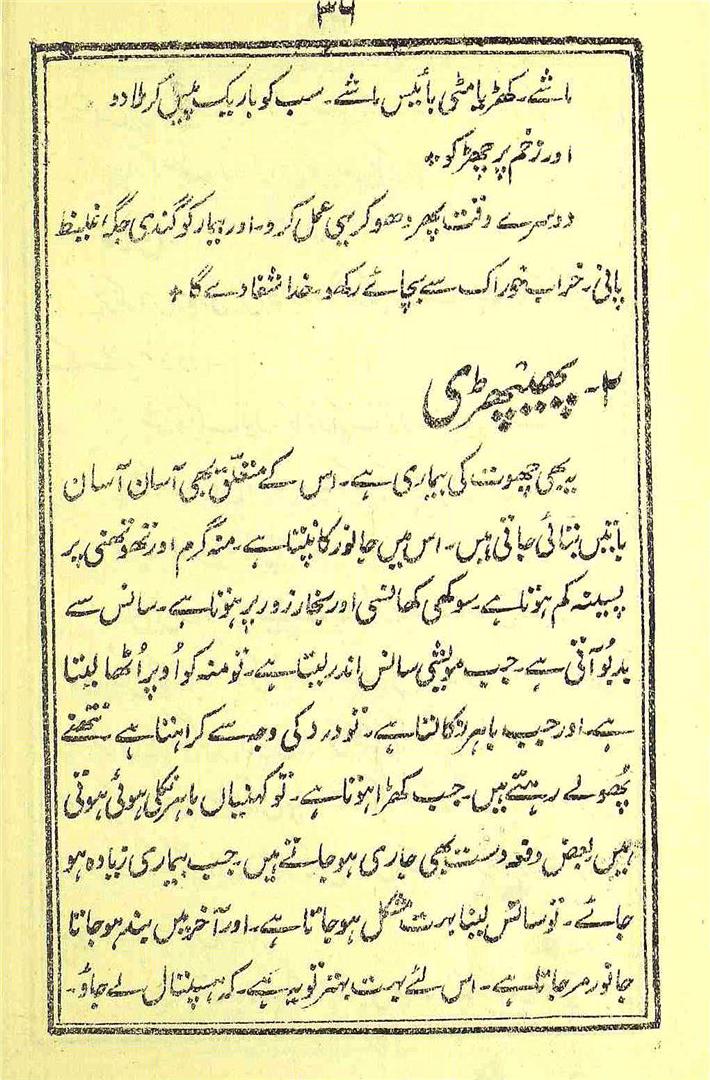 ۳۶
ماشے۔ کھڑیا مٹی بائیس ماشے۔ سب کو باریک پیس کر ملا دو
اور زخم پر چھڑکو*
دوسرے وقت پھر دھو کر یہی عمل کرو۔ اور بیمار کو گندی جگہ، غلیظ
پانی۔ خراب خوراک سے بچائے رکھو۔ خدا شفا دے گا*
۲- پھیپھڑی
یہ بھی چھوت کی بیماری ہے۔ اس کے متعلّق بھی آسان آسان
باتیں بتائی جاتی ہیں۔ اس میں جانور کانپتا ہے۔ منہ گرم اور تھوتھنی پر
پسینہ کم ہوتا ہے۔ سوکھی کھانسی اور بخار زور پر ہوتا ہے۔ سانس سے
بدبُو آتی ہے۔ جب مویشی سانس اندر لیتا ہے۔ تو منہ کو اُوپر اُٹھا لیتا
ہے۔ اور جب باہر نکالتا ہے۔ تو درد کی وجہ سے کراہتا ہے۔ نتھنے
پُھولے رہتے ہیں۔ جب کھڑا ہوتا ہے۔ تو کہنیاں باہر نکلی ہوئی ہوتی
ہیں۔ بعض دفعہ دست بھی جاری ہو جاتے ہیں۔ جب بیماری زیادہ ہو
جائے۔ تو سانس لینا بہت مشکل ہو جاتا ہے۔ اور آخر میں بند ہو جاتا
جانور مر جاتا ہے۔ اس لئے بہت بہتر تو یہ ہے۔ کہ ہسپتال لے جاؤ۔